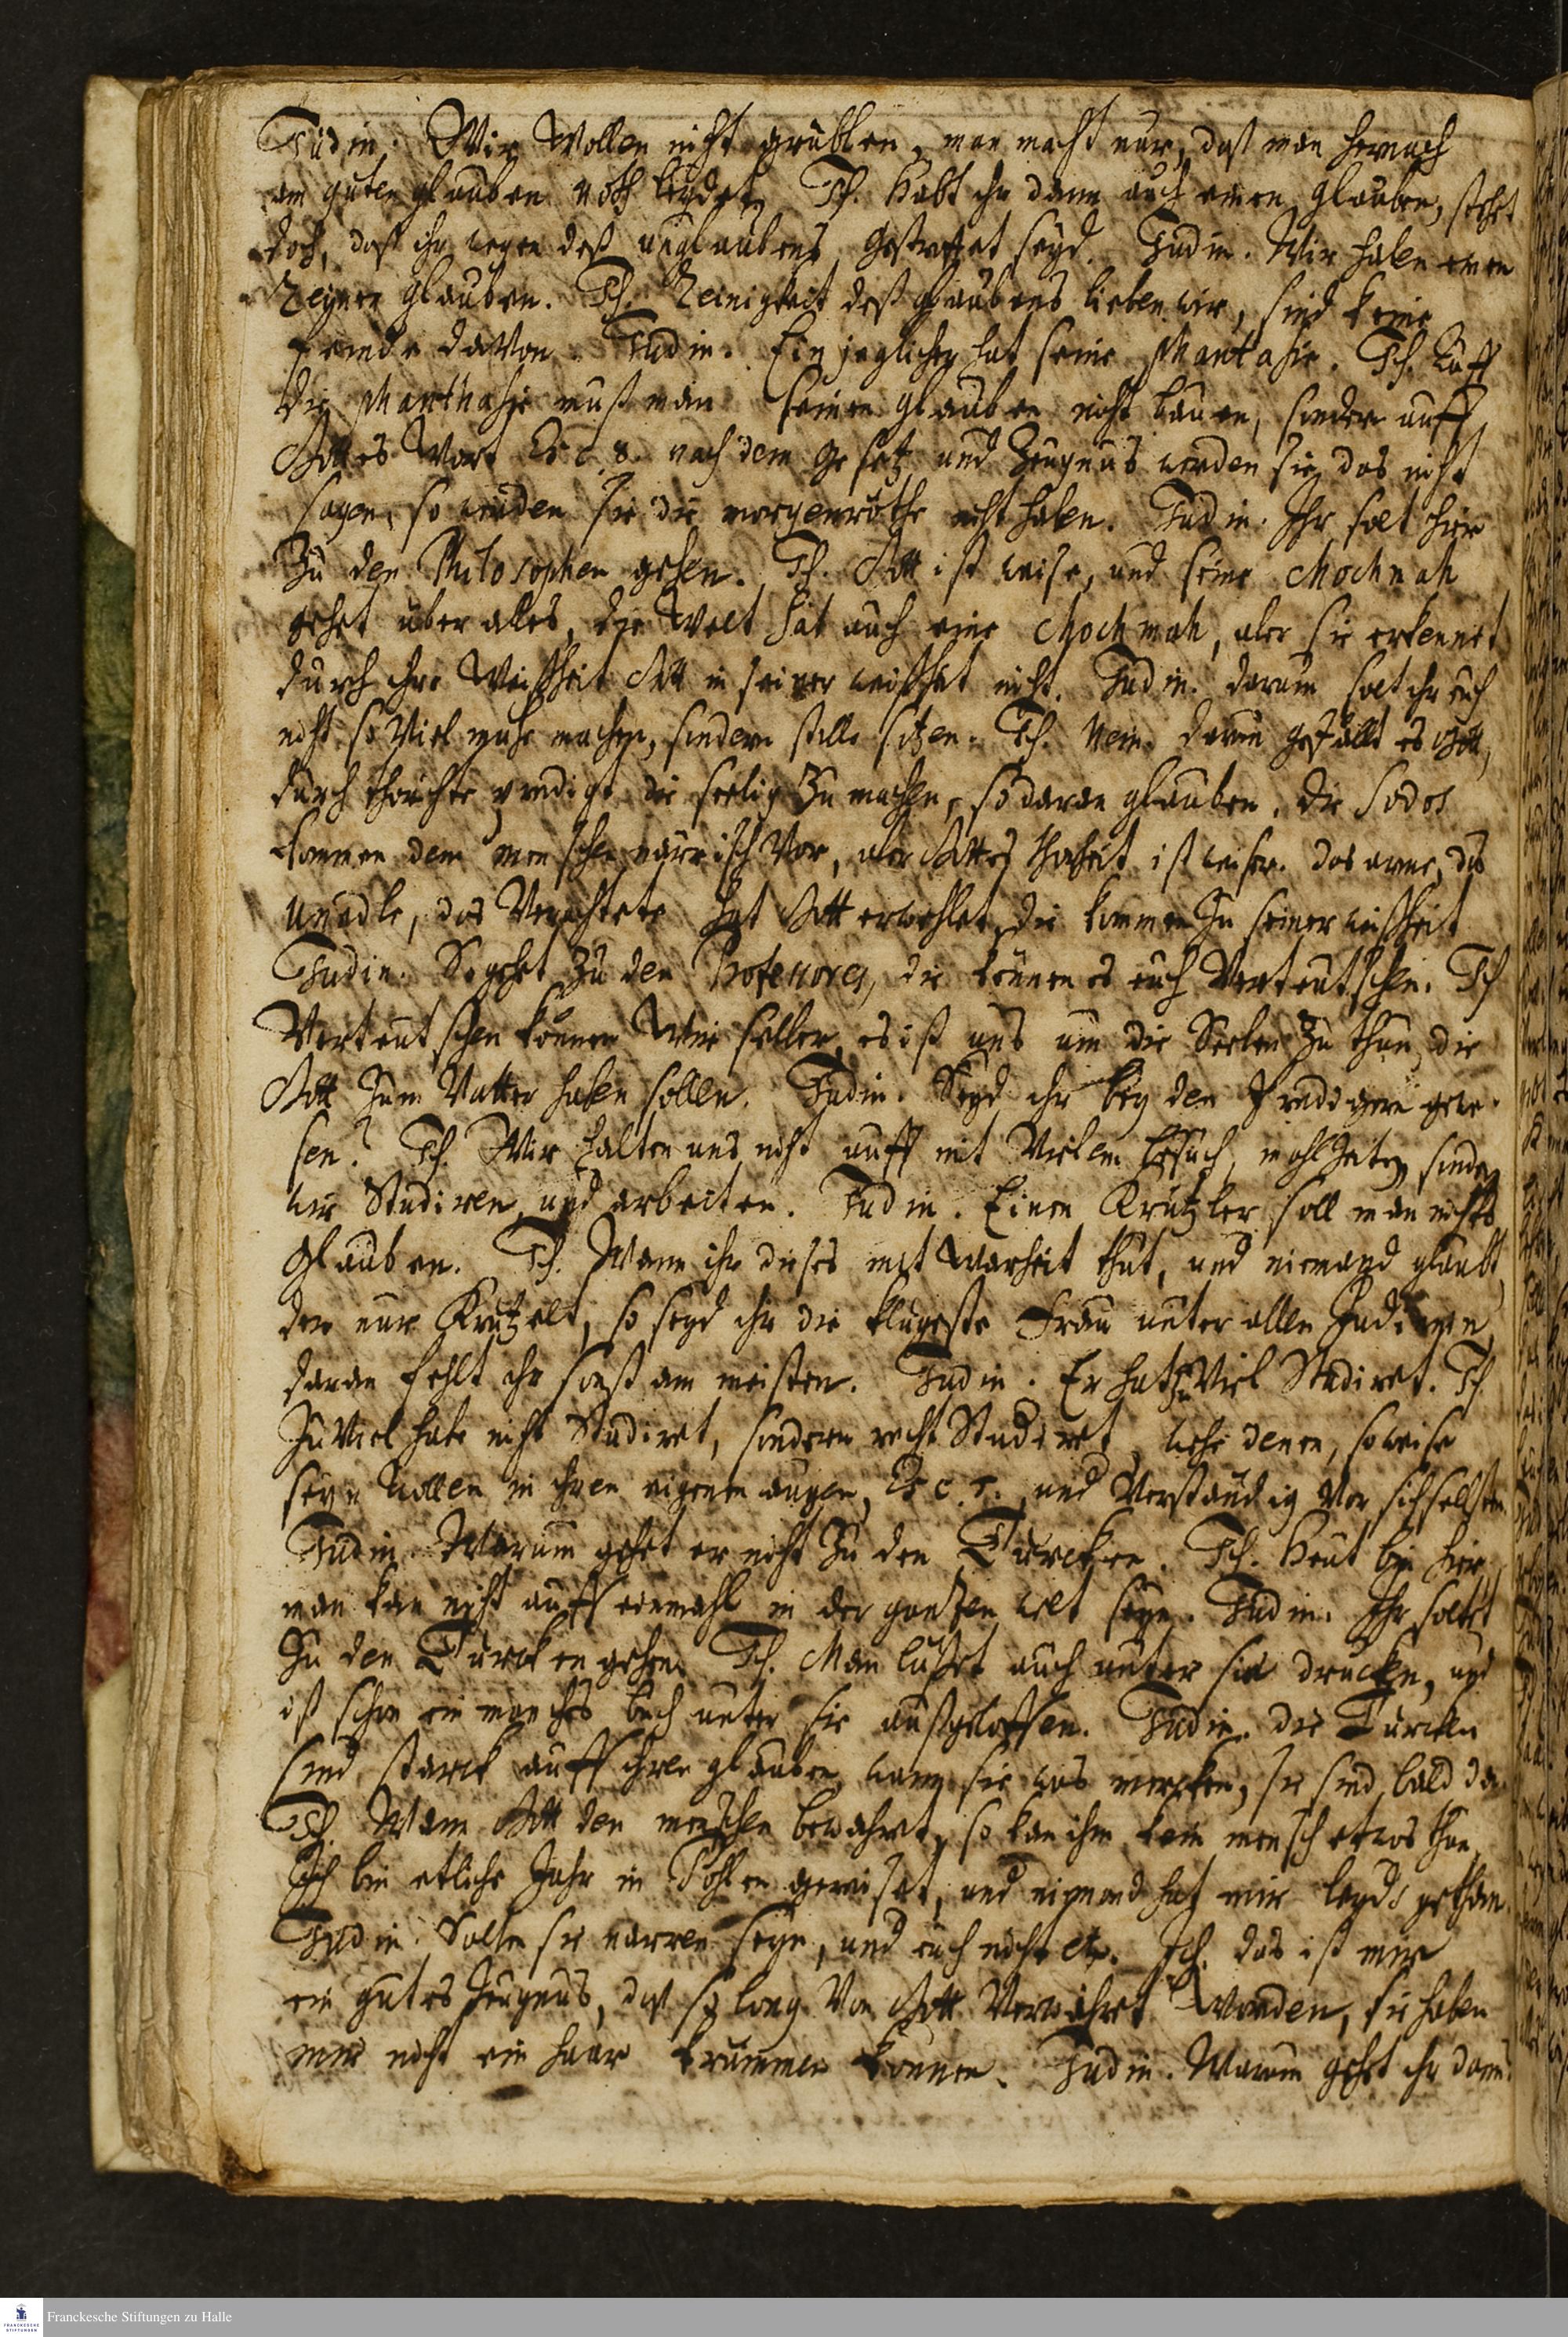 Jüdin. Wir Wollen nicht grüblen, man macht nur, daß man hernach
am guten glauben noth leydet, Ich. Habt ihr dann auch einen glauben, sehet
doch, daß ihr wegen deß unglaubens gestrafet seyd. Jüdin. Wir haben einen
Reinen glauben. Ich. Reinigkeit deß glaubens lieben wir, sind keine
feinde davon. Jüdin. Ein jeglicher hat seine phantasie. Ich. Auff
die phanthasie muß man seinen glauben nicht bauen, sondern auff
Gottes Wort Es. c. 8. nach dem Gesetz und Zeugnus werden sie das nicht
sagen, so werden sie die morgenröthe nicht haben. Jüdin. Ihr solt hier
Zu den Philosophen gehen. Ich. Gott ist weise, und seine Chochmah
gehet über alles, die Welt hat auch eine Chochmah, aber sie erkennet
durch ihre Weißheit Gott in seiner weißheit nicht. Jüdin. darum solt ihr euch
nicht so Viel mühe machen, sondern stille sitzen. Ich. Nein. darum gefällt es Gott,
durch thörichte predigt die seelig Zu machen, so daran glauben. die Sodos
kommen dem menschen närrisch Vor, aber Gottes thorheit ist weiser. das arme, das
unedle, das Verachtete hat Gott erwehlet, die kommen Zu seiner weißheit
Jüdin. So gehet Zu den Professores, die können es euch Verteutschen. Ich
Verteutschen können Wir selber, es ist uns um die Seelen Zu thun, die
Gott Zum Vatter haben sollen. Jüdin. Seyd ihr bey den Predigern gewe-
sen? Ich. Wir halten uns nicht auff mit Vielem besuch, mahlZeiten, sondern
wir Studiren, und arbeiten. Jüdin. Einen Krützler soll man nichts
Glauben. Ich. Wann ihr dieses mit Warheit thut, und niemand glaubt,
der nur Krützelt, so seyd ihr die klügeste Frau unter allen Judinnen,
daran fehlt ihr sonst am meisten. Jüdin. Er hat zu Viel Studiret. Ich
Zu Viel habe nicht Studiret, sondern recht Studiret, wehe denen, so weise
seyn wollen in ihren eigenen augen, Es. c. 5. und Verständig Vor sich selbsten.
Jüdin. Warum gehet er nicht Zu den Türcken. Ich. Heut bin hier,
man kan nicht auff einmahl in der gantzen welt seyn. Jüdin. Ihr soltet
Zu den Türcken gehen. Ich. Man lässet auch unter sie drucken, und
ist schon ein manches buch unter sie außgeloffen. Jüdin. die Türcken
sind starck auff ihren glauben, wann sie was mercken, sie sind bald da.
Ich. Wann Gott den menschen bewahret, so kan ihm kein mensch etwas thun,
Ich bin etliche Jahr in Pohlen gereiset, und niemand hat mir leyds gethan.
Jüdin. Solten sie narren seyn, und euch nicht etc. Ich. das ist mir
ein gutes Zeugnus, daß so lang Von Gott Verwahret Worden, sie haben
mir nicht ein haar krümmen können. Jüdin. Warum gehet ihr dann
Franckesche Stiftungen zu Halle